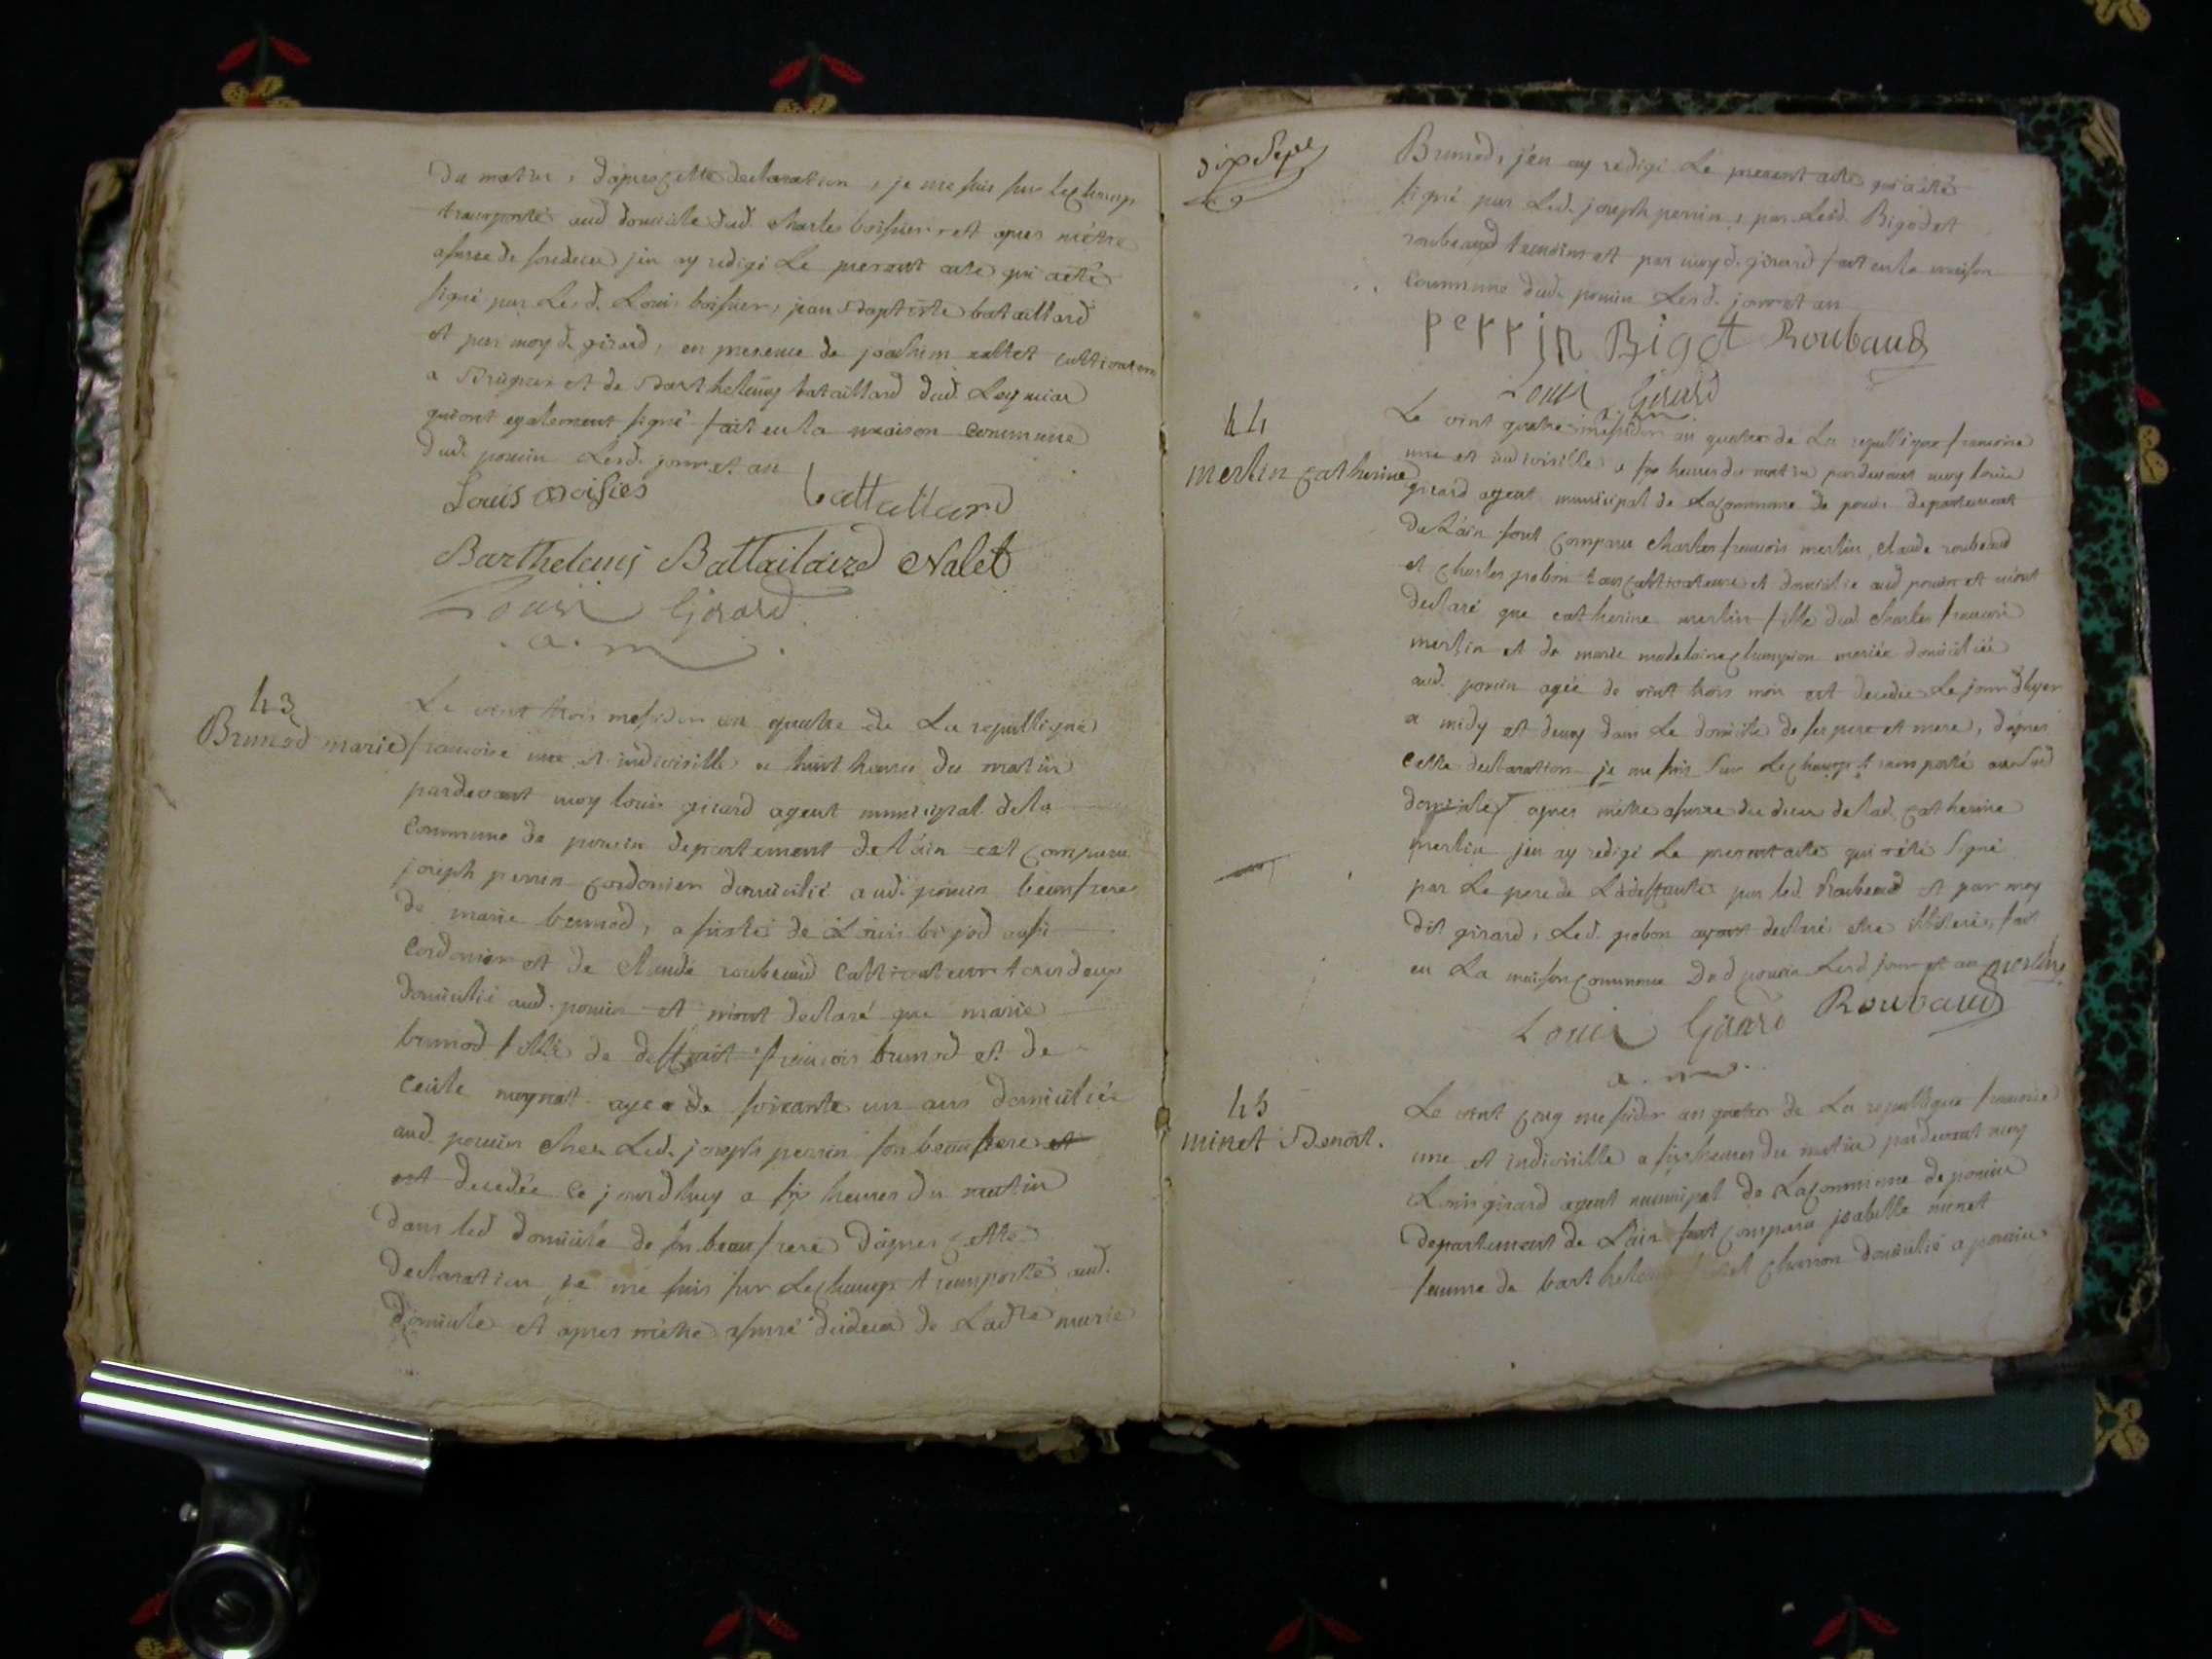 du matin, d'apres cette declaration, je me suis sur le champ
transporté aud domicile dud. charles boissier et apres m'être
assuré de son deces jen ay redigé Le present acte qui a eté
signé par Les d. Louis boissier, jean Baptiste bataillard
et par moy d. girard, en presence de joachim nallet cultivateur
a et de Barthelemy bataillard dud.
qui ont egalement signé fait en la maison commune
dud. poncin Lesd. jour et an
Louis Boisies battallard
Barthelemy Battailaird Nalet
Louis Girard
a. m
43
Brunod marie
Le vint trois messidor an quatre de La republique
francoise une et indivisille a huit heures du matin
pardevant moy louis girard agent municipal de la
commune de poncin departement de l'ain est comparu
joseph perrin cordonier domicilié aud. poncin beaufrere
de marie brunod, assisté de Louis bigod aussi
cordonier et de claude roubaud cultivateur tous deux
domicilié aud. poncin et m'ont declaré que marie
brunod fille de deffunt francois brunod et de
cecile agee de soixante un ans domiciliée
aud. poncin chez Led. joseph perrin son beaufrere et
est decedée ce jourdhuy a six heures du matin
dans led domicile de son beaufrere d'apres cette
declaration je me suis sur Le champ transporté aud.
domicile et apres m'etre assuré du deces de Ladte marie
dix Sept
Brunod, j'en ay redigé Le present acte qui a eté
signé par Led. joseph perrin, par Lesd. Bigod et
roubaud temoins et par moy d. girard fait en la maison
commune dud. poncin Lesd. jour et an
perrin Bigot Roubaud
Louis Girard
a. m.
44
merlin catherine
Le vint quatre messidor an quatre de La republique francoise
une et indivisille a six heures du matin pardevant moy louis
girard agent municipal de La commune de poncin departement
de l'ain sont comparu charles francois merlin, claude roubaud
et charles grobon tous cultivateurs et domicilié aud poncin et m'ont
declaré que catherine merlin fille dud charles francois
merlin et de marie madelaine champion mariée domiciliée
aud. poncin agée de vint trois mois est decedée Le jour d'hyer
a midy et demy dans Le domicile de ses pere et mere, d'apres
cette declaration je me suis sur Le champ transporté aud
domicile et apres m'etre assuré du deces de lad. catherine
merlin jen ay redigé Le present acte qui a été signé
par Le pere de La deffunte par led. Roubaud et par moy
dit girard, Led. grobon ayant declaré etre illiteré, fait
en La maison commune dud poncin Lesd jour et an merlin
Louis Girard Roubaud
a. m.
45
minet Benoit.
Le vint cinq messidor an quatre de La republique francoise
une et indivisille a six heures du matin pardevant moy
Louis girard agent municipal de La commune de poncin
departement de L'ain sont comparu jsabelle minet
femme de barthelemy charron domicilié a poncin